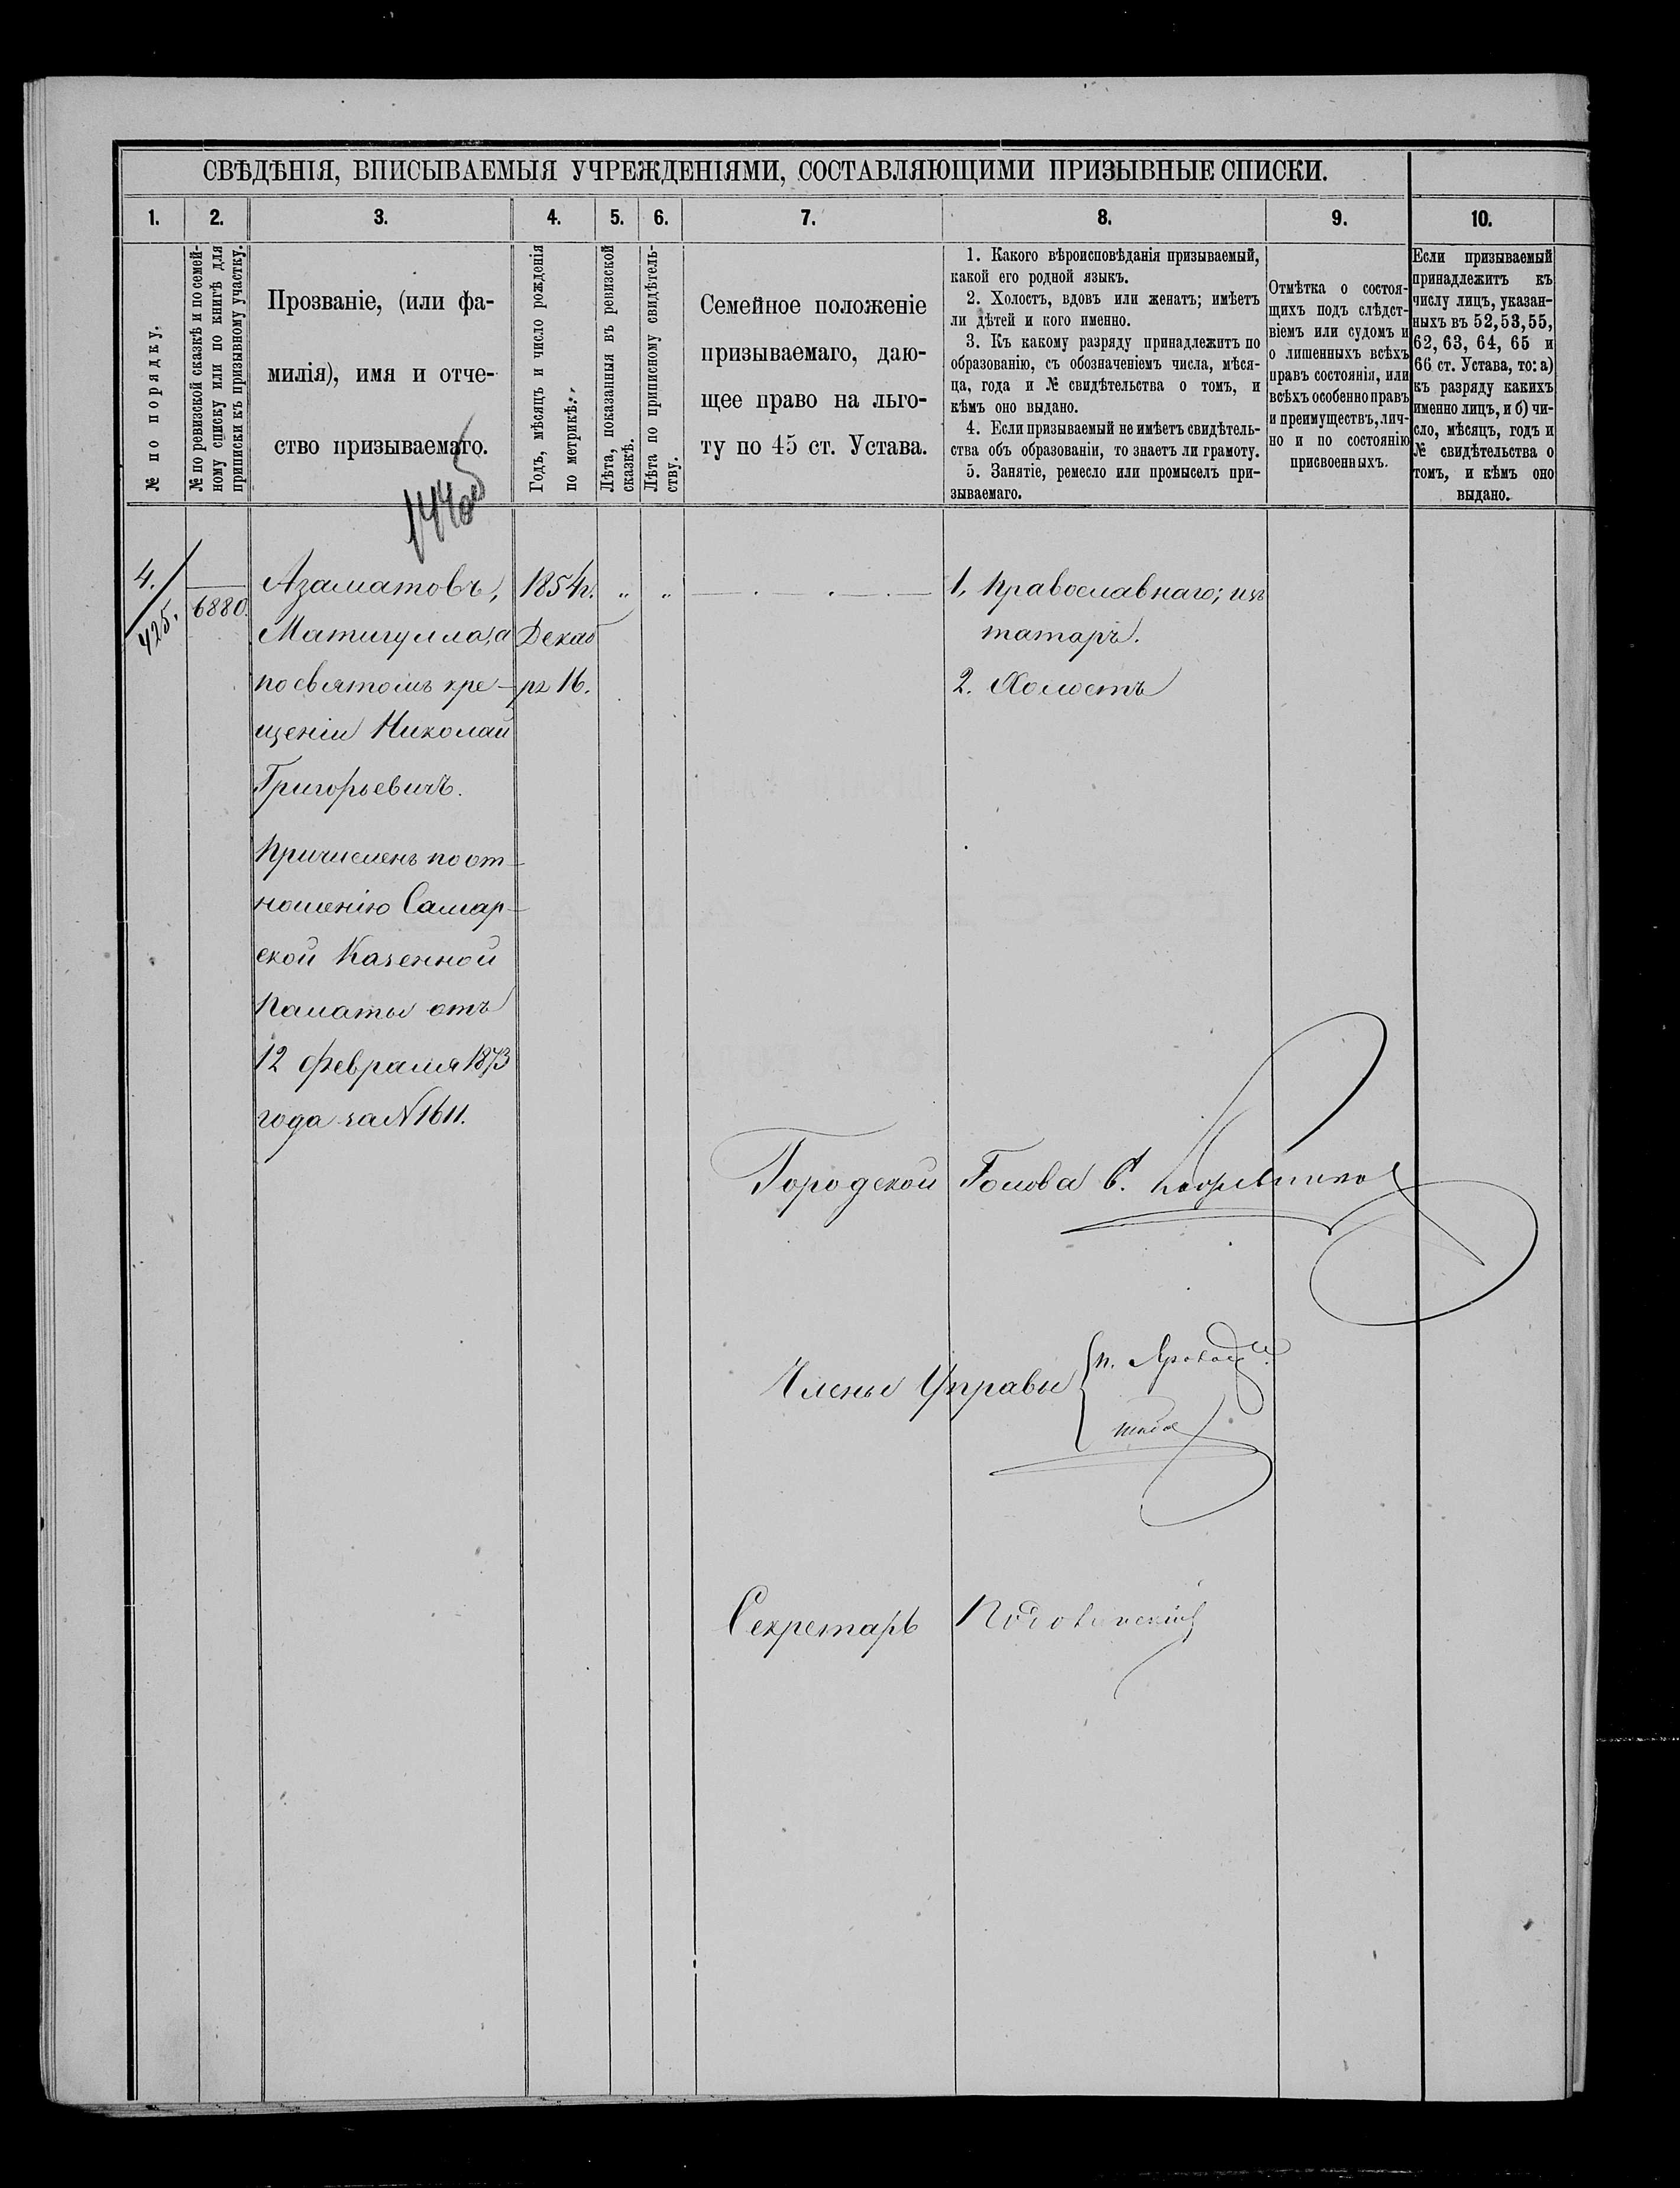 СВѢДѢНІЯ, ВПИСЫВАЕМЫЯ УЧРЕЖДЕНІЯМИ, СОСТАВЛЯЮЩИМИ ПРИЗЫВНЫЕ СПИСКИ.
1. 2. 3. 4. 5. 6. 7. 8. 9. 10.
№ по порядку.
№ по ревизской сказкѣ и по семей-
ному списку или по книгѣ для
приписки къ призывному участку.
Прозваніе, (или фа-
милія), имя и отче-
ство призываемаго.
Годъ, мѣсяцъ и число рожденія
по метрикѣ.
Лѣта, показанныя въ ревизской
сказкѣ.
Лѣта по приписному свидѣтель-
ству.
Семейное положеніе
призываемаго, даю-
щее право на льго-
ту по 45 ст. Устава.
1. Какого вѣроисповѣданія призываемый,
какой его родной языкъ.
2. Холостъ, вдовъ или женатъ; имѣетъ
ли дѣтей и кого именно.
3. Къ какому разряду принадлежитъ по
образованію, съ обозначеніемъ числа, мѣся-
ца, года и № свидѣтельства о томъ, и
кѣмъ оно выдано.
4. Если призываемый не имѣетъ свидѣтель-
ства объ образованіи, то знаетъ ли грамоту.
5. Занятіе, ремесло или промыселъ при-
зываемаго.
Отмѣтка о состоя-
щихъ подъ слѣдст-
віемъ или судомъ и
о лишенныхъ всѣхъ
правъ состоянія, или
всѣхъ особенно правъ
и преимуществъ, лич-
но и по состоянію
присвоенныхъ.
Если призываемый
принадлежитъ къ
числу лицъ, указан-
ныхъ въ 52, 53, 55,
62, 63, 64, 65 и
66 ст. Устава, то: а)
къ разряду какихъ
именно лицъ, и б) чи-
сло, мѣсяцъ, годъ и
№ свидѣтельства о
томъ, и кѣмъ оно
выдано.
4.
425.
6880.
Азаматовъ,
Матигулла, а
по святомъ кре-
щеніи Николай
Григорьевичъ.
Причисленъ по от-
ношенію Самар-
ской Казенной
Палаты отъ
12 февраля 1873
года за № 1611.
1854 г.
Декаб
ря 16.
" "
1. Православнаго; изъ
татаръ.
2. Холостъ
Городской Голова
Члены Управы
Секретарь